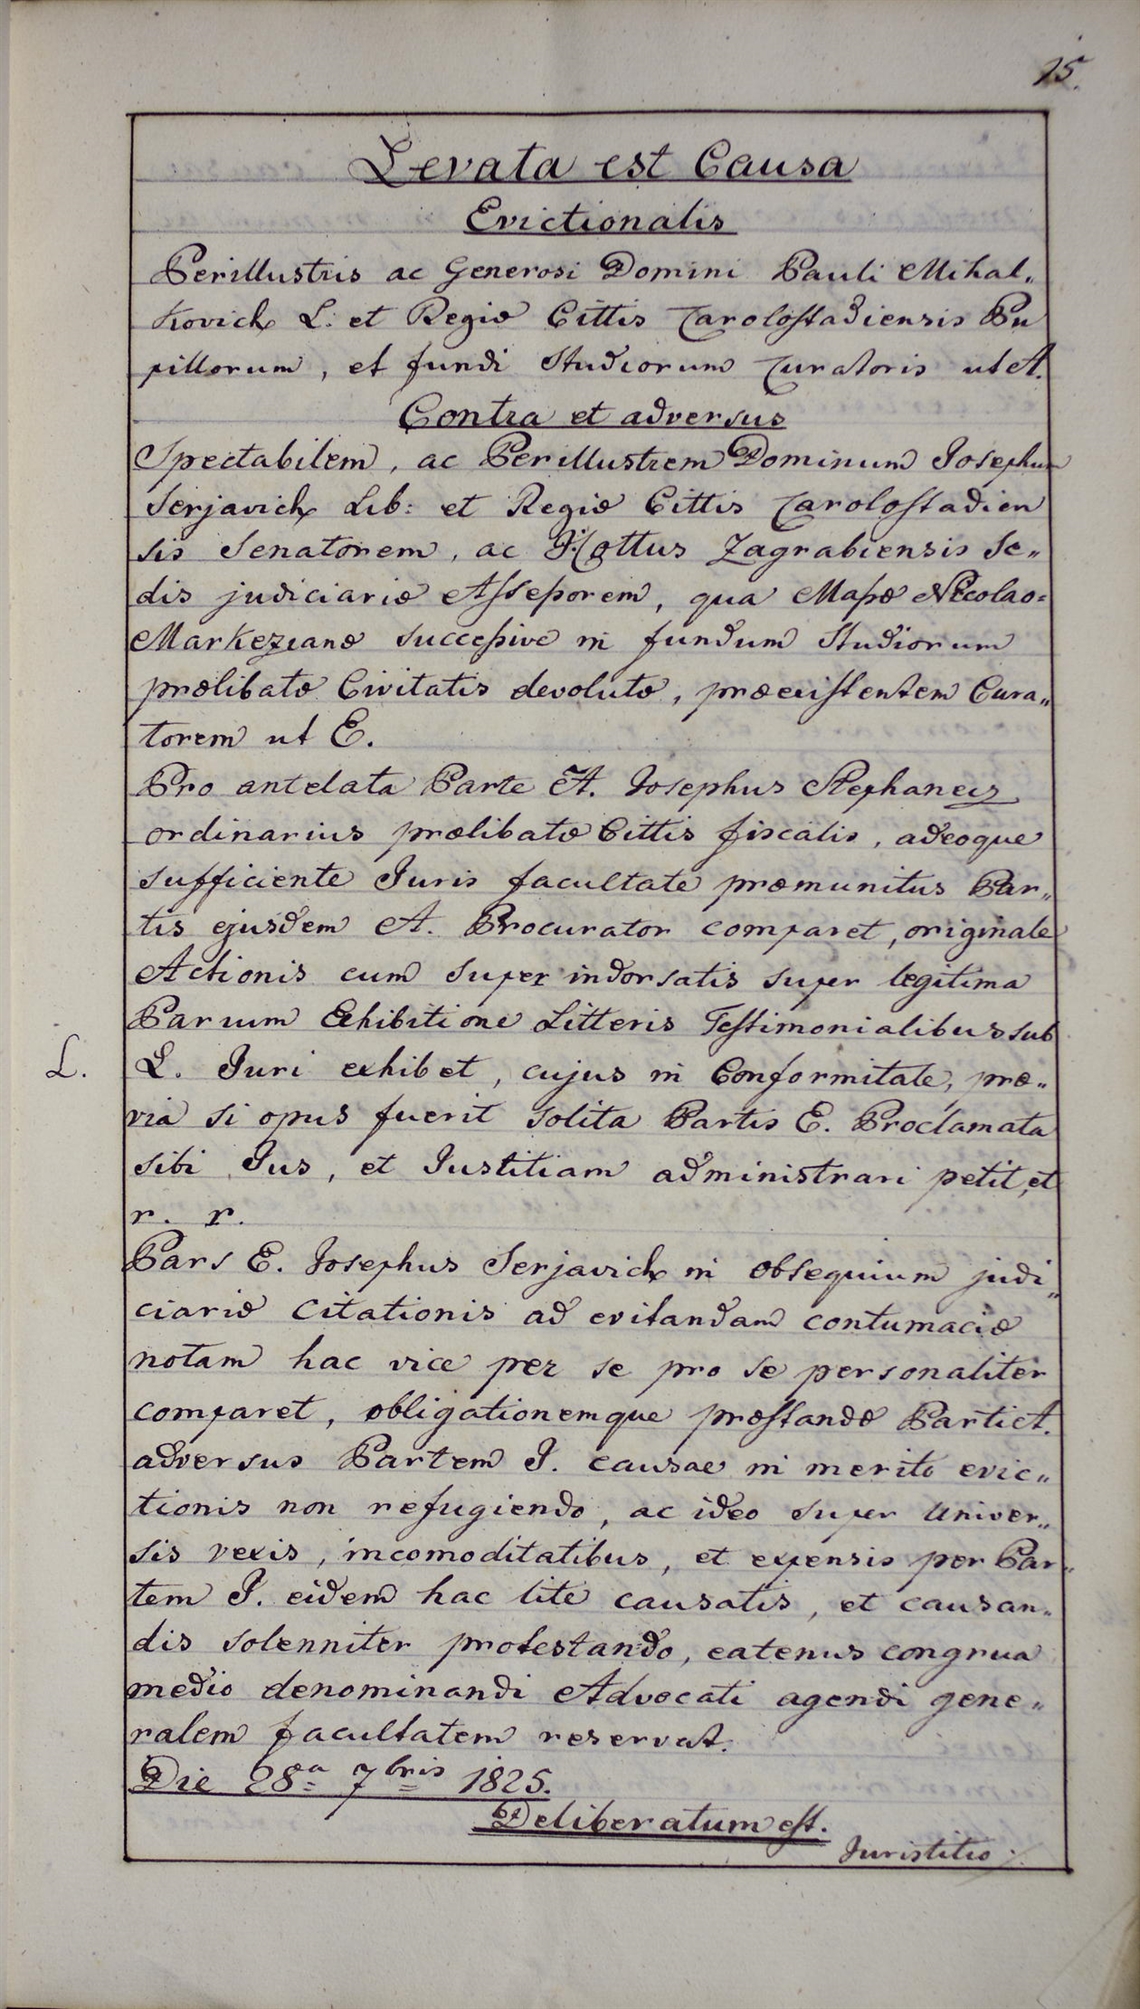 15.
Levata est Causa
Evictionalis
Perillustris ac Generosi Domini Pauli Mihal„
kovich L: et Regiæ Cittis Carolostadiensis Pu
pillorum, et fundi Studiorum Curatoris ut A.
Contra et adversus
Spectabilem, ac Perillustrem Dominum Josephum
Serjavich Lib: et Regiæ Cittis Carolostadien
sis Senatorem, ac I. Cottus Zagrabiensis Se„
dis judiciariæ Assessorem, qua Massæ Nicolao=
Markezianæ successive in fundum Studiorum
prælibatæ Civitatis devolutæ, præexistentem Cura„
torem ut E.
Pro antelata Parte A. Josephus Stephanecz
ordinarius prælibatæ Cittis fiscalis, adeoque
sufficiente Juris facultate præmunitus Par„
tis ejusdem A. Procurator comparet, originale
Actionis cum super indorsatis super legitima
Parium Exhibitione Litteris Testimonialibus sub
L. L. Juri exhibet, cujus in Conformitate, præ„
via si opus fuerit solita Partis E. Proclamata
sibi Jus, et Justitiam administrari petit, et
r. r.
Pars E. Josephus Serjavich in obsequium judi„
ciariæ citationis ad evitandam contumaciæ
notam hac vice per se pro se personaliter
comparet, obligationemque præstandæ Parti A.
adversus Partem I. causae in merito evic„
tionis non refugiendo, ac ideo super univer„
sis vexis, incomoditatibus, et expensis per Par„
tem I. eidem hac lite causatis, et causan„
dis solenniter protestando, eatenus congrua
medio denominandi Advocati agendi gene„
ralem facultatem reservat.
Die 28a 7bris 1825.
Deliberatum est.
Juristitio